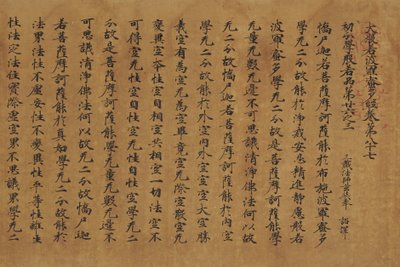 大般若波羅蜜多經卷第八十七
初分學般若品第廿六之三
三藏法師玄奘奉 詔譯
憍尸迦若菩薩摩訶薩能於布施波羅蜜多
學无二分故能於淨戒安忍精進靜慮般若
波羅蜜多學无二分故是菩薩摩訶薩能學
无量无數无邊不可思議清淨佛法何以故
學无二分故憍尸迦若菩薩摩訶薩能於內空
學无二分故能於外空內外空空空大空勝
義空有為空无為空畢竟空无際空散空无
變異空本性空自相空共相空一切法空不
可得空无性空自性空无性自性空學无二
分故是菩薩摩訶薩能學无量无數无邊不
可思議清淨佛法何以故學无二分故憍尸迦
若菩薩摩訶薩能於真如學无二分故能於
法界法性不虛妄性不變異性平等性離生
性法定法住實際虛空界不思議界學无二